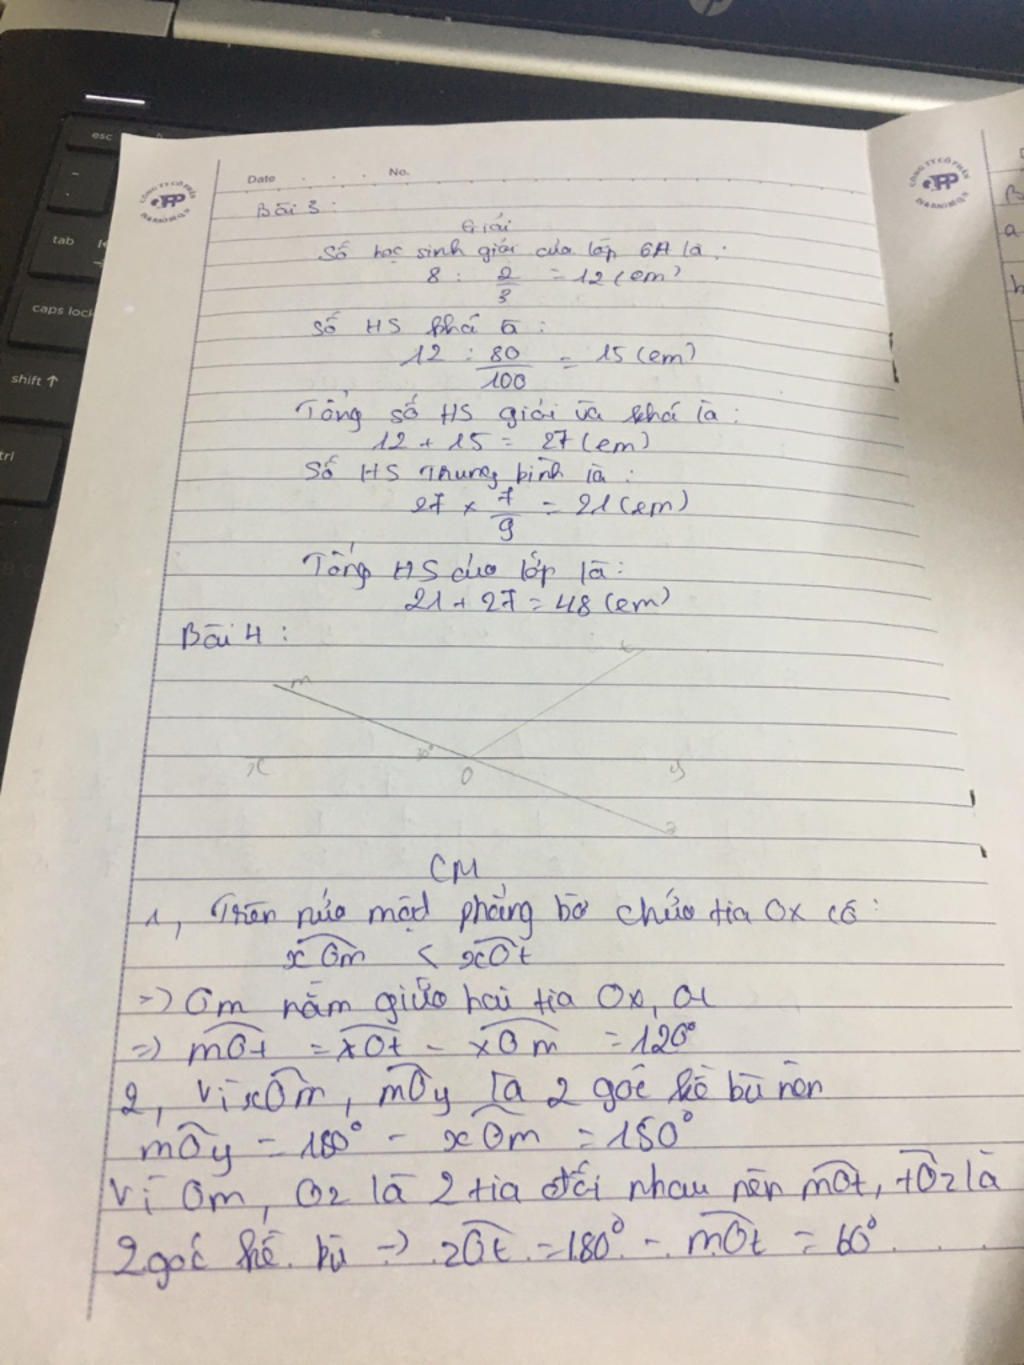 esc
tab
caps lock
shift
trl
CÔNG TY CỔ PHẦN
Date No.
Bài 3 :
Giải
Số học sinh giỏi của lớp 6A là :
8 : 2/3 = 12 (em)
Số HS khá là :
12 : 80/100 = 15 (em)
Tổng số HS giỏi và khá là :
12 + 15 = 27 (em)
Số HS Trung bình là :
27 x 7/9 = 21 (em)
Tổng HS của lớp là :
21 + 27 = 48 (em)
Bài 4 :
t
m
30°
x O y
z
CM
1, Trên nửa mặt phẳng bờ chứa tia Ox có :
xOm < xOt
=> Om nằm giữa hai tia Ox, Ot
=> mOt = xOt - xOm = 120°
2, Vì xOm, mOy là 2 góc kề bù nên
mOy = 180° - xOm = 150°
Vì Om, Oz là 2 tia đối nhau nên mOt, tOz là
2 góc kề bù -> zOt = 180° - mOt = 60°